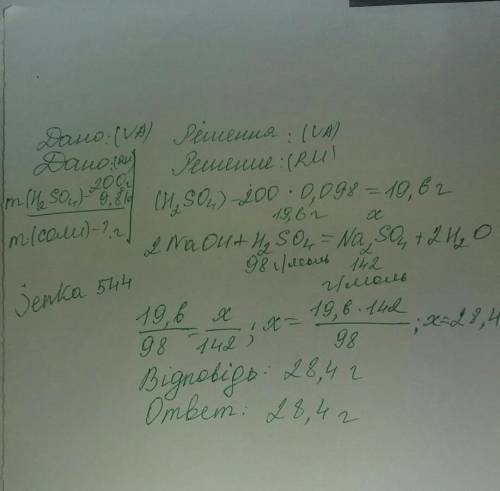 Дано: (UA) Рішення: (UA)
Дано: (RU) Решение: (RU)
m(H₂SO₄) - 200 г
9,8%
m(соли) - ?, г
(H₂SO₄) - 200 · 0,098 = 19,6 г
19,6 г x
2NaOH + H₂SO₄ = Na₂SO₄ + 2H₂O
98 г/моль 142 г/моль
jenka 544
19,6/98 = x/142; x = 19,6 · 142/98; x = 28,4
Відповідь: 28,4 г
Ответ: 28,4 г